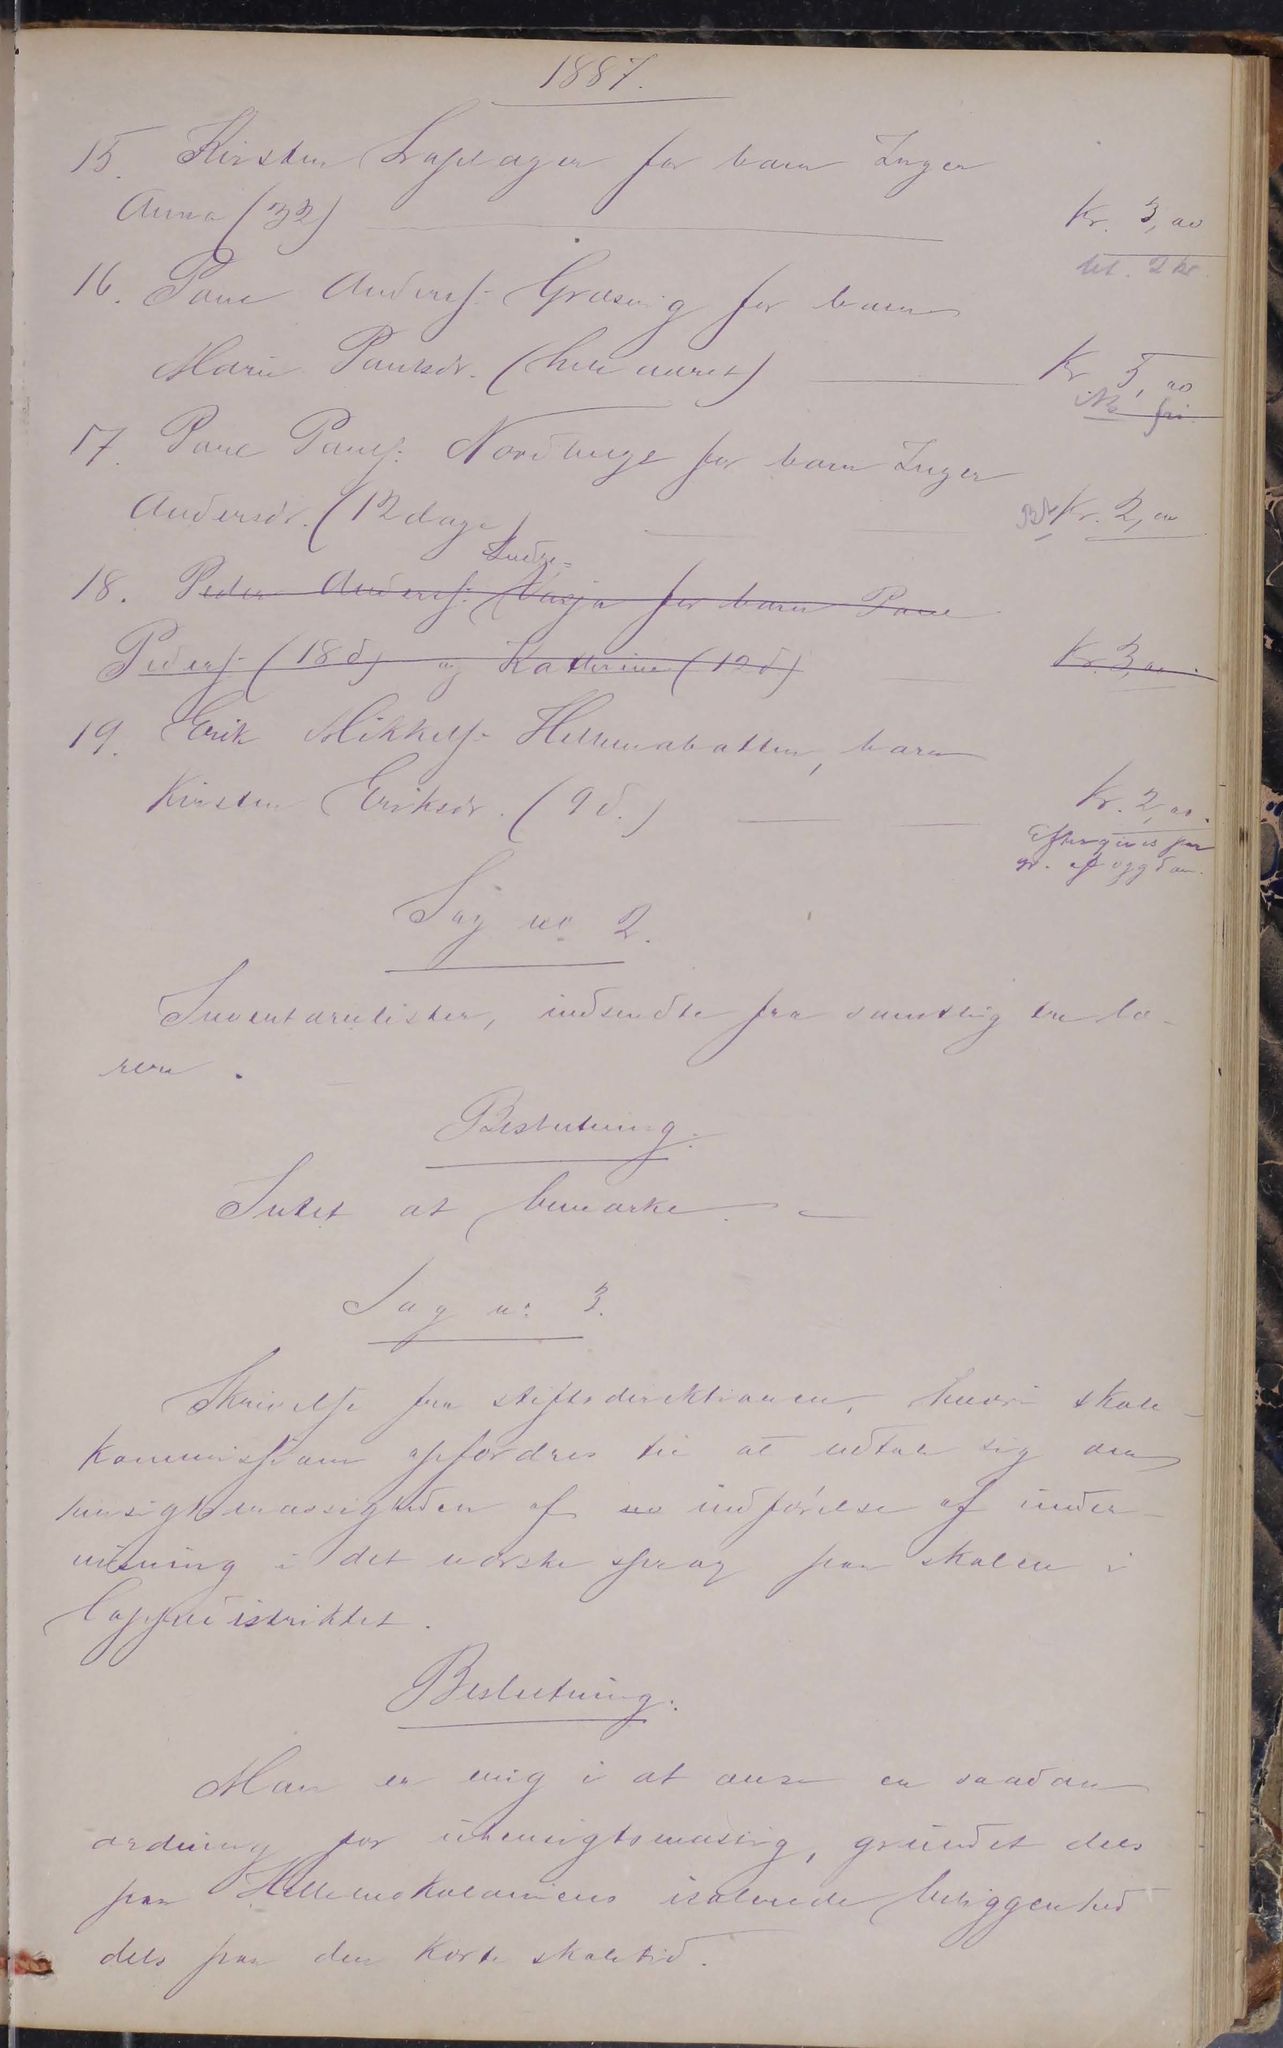 1887.
15. Kirsten for barn Inger
Anna (32) Kr. 3,00
bet. 2 kr.
16. Paul Anders. Græsvig for barn
Marie Paulsdr. (hele aaret) Kr 5,00
fri.
17. Paul Pauls. Nordbugt for barn Inger
Andersdr. (12 dage) Kr. 2,00
Indre-
18. Peder Anders. for barn Paul
Peders. (18 d) og Katherine (12 d) Kr. 3,00.
19. Erik Mikkels. Hellemobotten, barn
Kirsten Eriksdr. (9 d.) Kr. 2,00.
Eftergives paa
gr. af sygdom.
Sag no 2.
Inventarielister, indsendte fra samtlige tre læ-
rere.
Beslutning.
Intet at bemærke.
Sag no 3.
Skrivelse fra stiftsdirektionen, hvori skole-
kommissionen opfordres til at udtale sig om
hensigtsmæssigheden af indførelse af under-
visning i det norske sprog paa skolen i
lappedistriktet.
Beslutning.
Man er enig i at anse en saadan
ordning for uhensigtsmæssig, grundet dels
paa Hellemokoloniens isolerede beliggenhed
dels paa den korte skoletid.